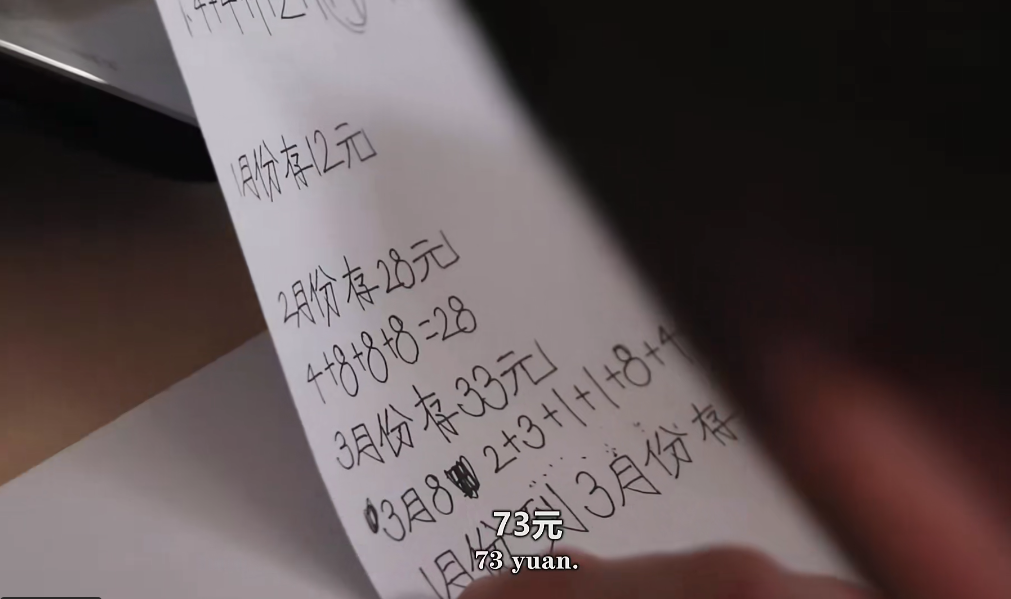 1月份存12元
2月份存28元
4+8+8+8=28
3月份存33元
3月8 2+3+1+1+8+4
1月份到3月份存
73元
73 yuan.